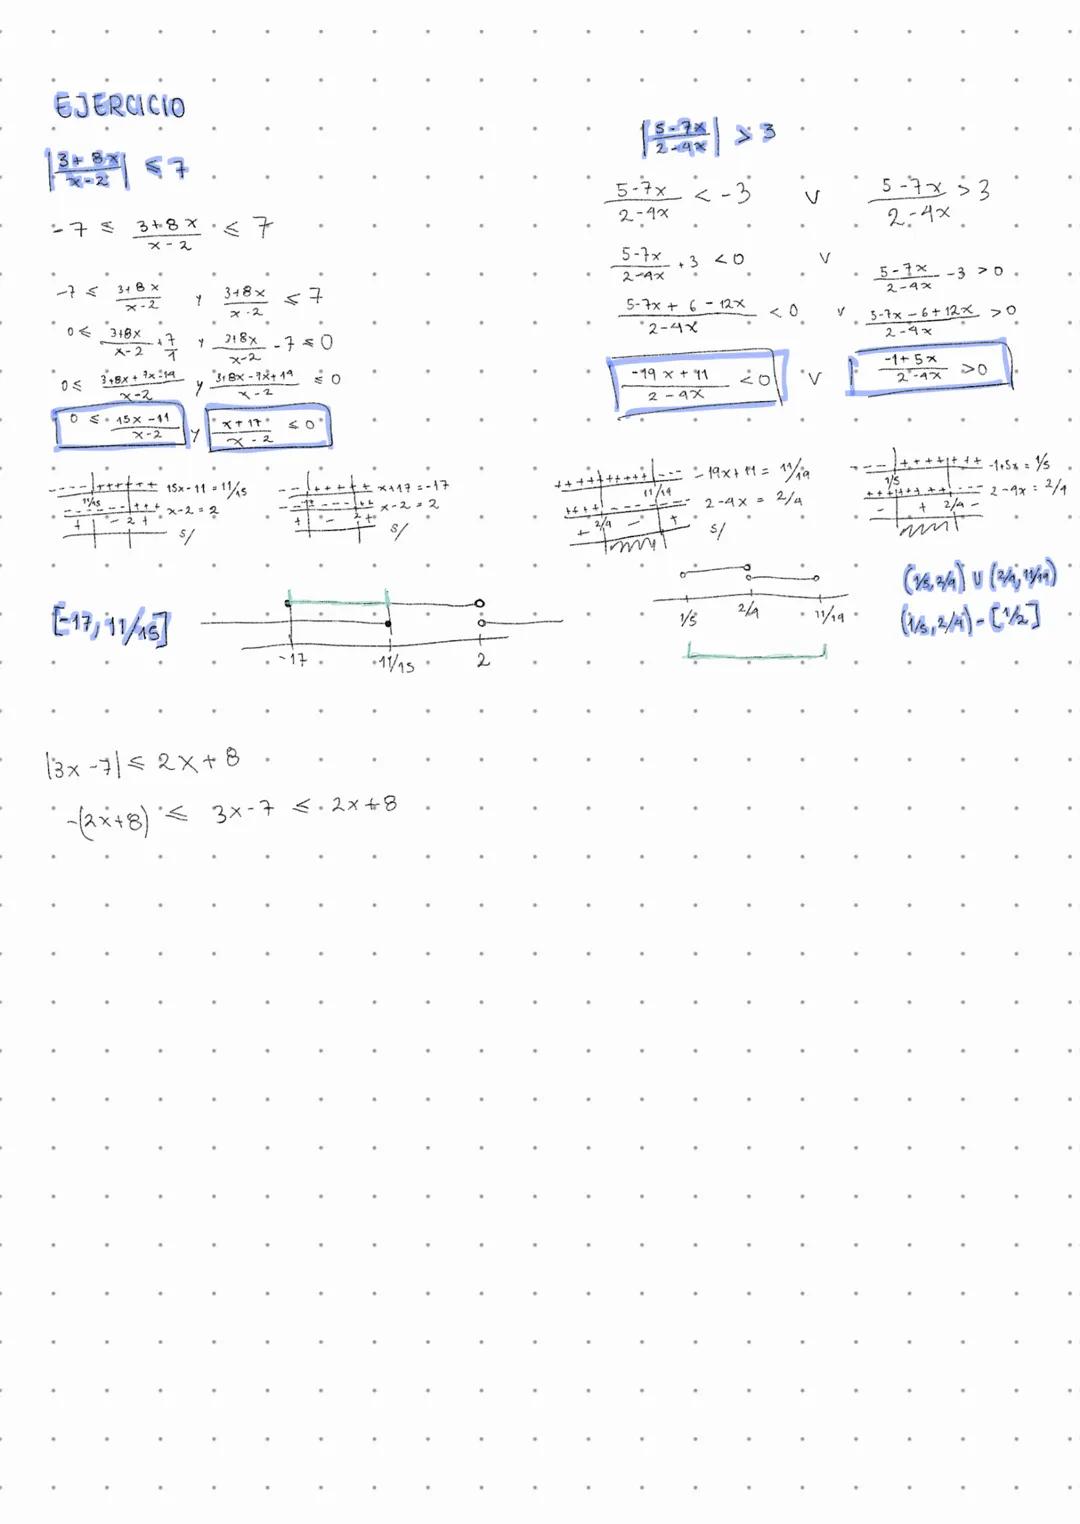 EJERCICIO
|3+8x / x-2| ≤ 7
-7 ≤ 3+8x / x-2 ≤ 7
-7 ≤ 3+8x / x-2 y 3+8x / x-2 ≤ 7
0 ≤ 3+8x / x-2 + 7/1 y 3+8x / x-2 - 7 ≤ 0
0 ≤ 3+8x+7x-14 / x-2 y 3+8x-7x+14 / x-2 ≤ 0
0 ≤ 15x-11 / x-2 y x+17 / x-2 ≤ 0
---- +++++++ 15x-11 = 11/15
11/15
------- +++ x-2 = 2
+ - 2 +
s/
-- +++++++ x+17 = -17
-17
------ ++ x-2 = 2
+ - 2 +
s/
[-17, 11/15]
-17 11/15 2
|3x-7| ≤ 2x+8
-(2x+8) ≤ 3x-7 ≤ 2x+8
|5-7x / 2-4x| > 3
5-7x / 2-4x < -3 v 5-7x / 2-4x > 3
5-7x / 2-4x + 3 < 0 v 5-7x / 2-4x - 3 > 0
5-7x + 6 - 12x / 2-4x < 0 v 5-7x-6+12x / 2-4x > 0
-19x + 11 / 2-4x < 0 v -1+5x / 2-4x > 0
++++++++++ --- -19x+11 = 11/19
11/19
++++ ------ 2-4x = 2/4
+ 2/4 - +
s/
--- ++++++++ -1+5x = 1/5
1/5
++++++++ --- 2-4x = 2/4
- + 2/4 -
1/5 2/4 11/19
(1/5, 2/4) U (2/4, 11/19)
(1/5, 2/4) - [1/2]